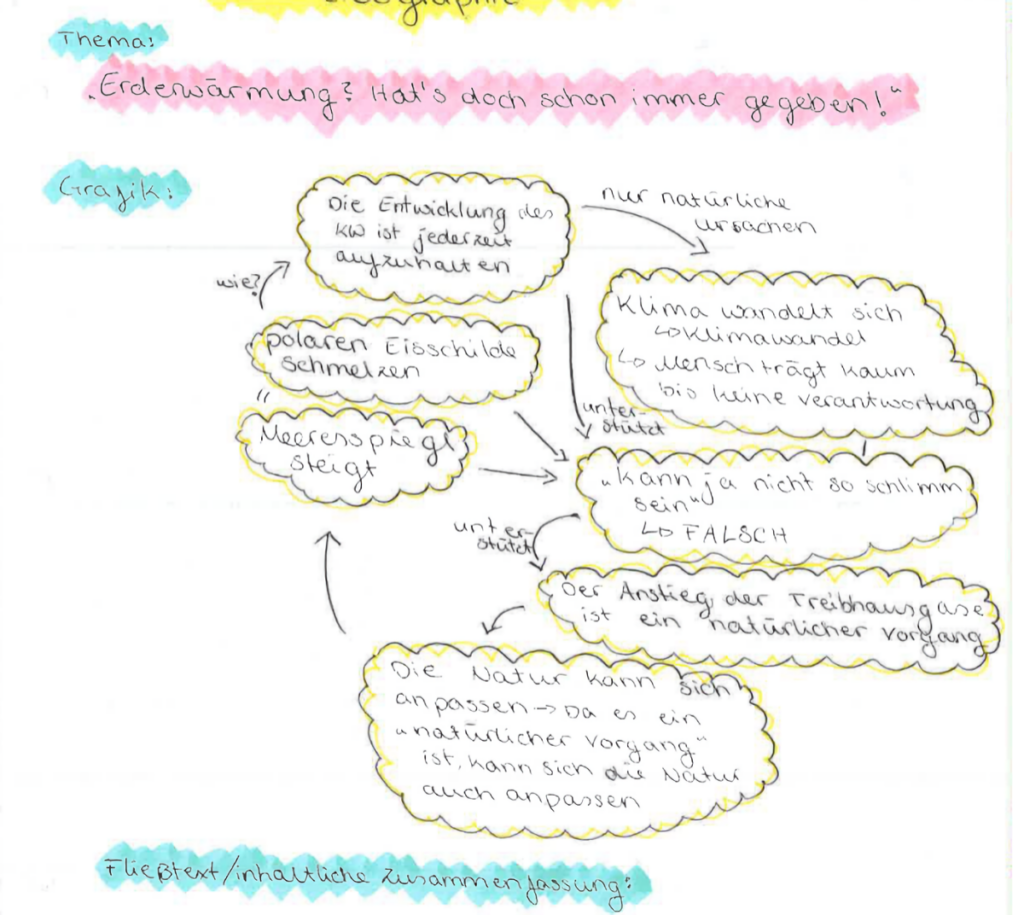 Geographie
Thema:
„Erderwärmung? Hat's doch schon immer gegeben!"
Grafik:
Die Entwicklung des
KW ist jederzeit
aufzuhalten
nur natürliche
ursachen
wie?
Klima wandelt sich
↳ Klimawandel
↳ Mensch trägt kaum
bis keine verantwortung
polaren Eisschilde
schmelzen
"
Meeresspiegl
steigt
unter-
stützt
„Kann ja nicht so schlimm
sein"
↳ FALSCH
unter-
stützt
Der Anstieg der Treibhausgase
ist ein natürlicher vorgang
Die Natur kann sich
anpassen → Da es ein
„natürlicher Vorgang"
ist, kann sich die Natur
auch anpassen
Fließtext/inhaltliche Zusammenfassung: